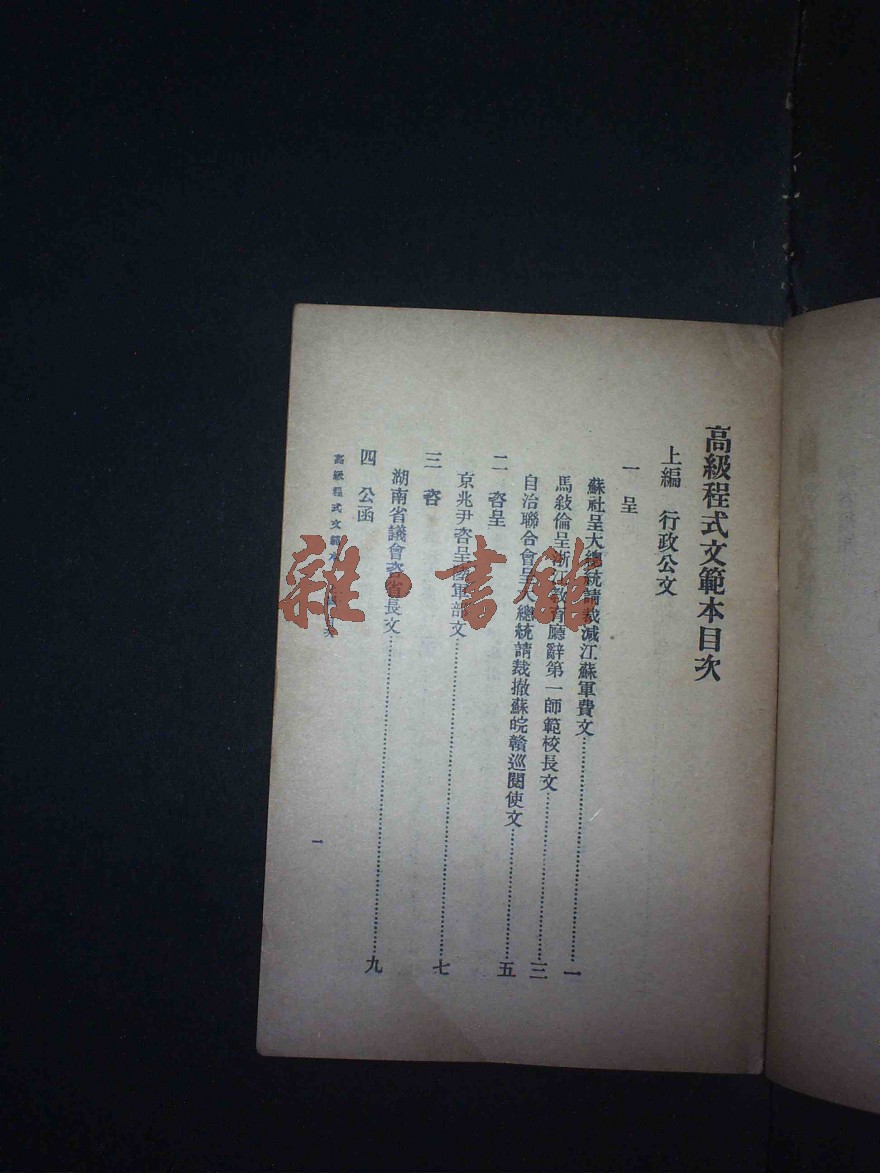 高級程式文範本目次
上編　行政公文
一　呈
蘇社呈大總統請裁減江蘇軍費文……一
馬敍倫呈浙江教育廳辭第一師範校長文……三
自治聯合會呈大總統請裁撤蘇皖贛巡閱使文……五
二　咨呈
京兆尹咨呈陸軍部文……七
三　咨
湖南省議會咨省長文……九
四　公函
高級程式文範本　目次
一
雜·書館